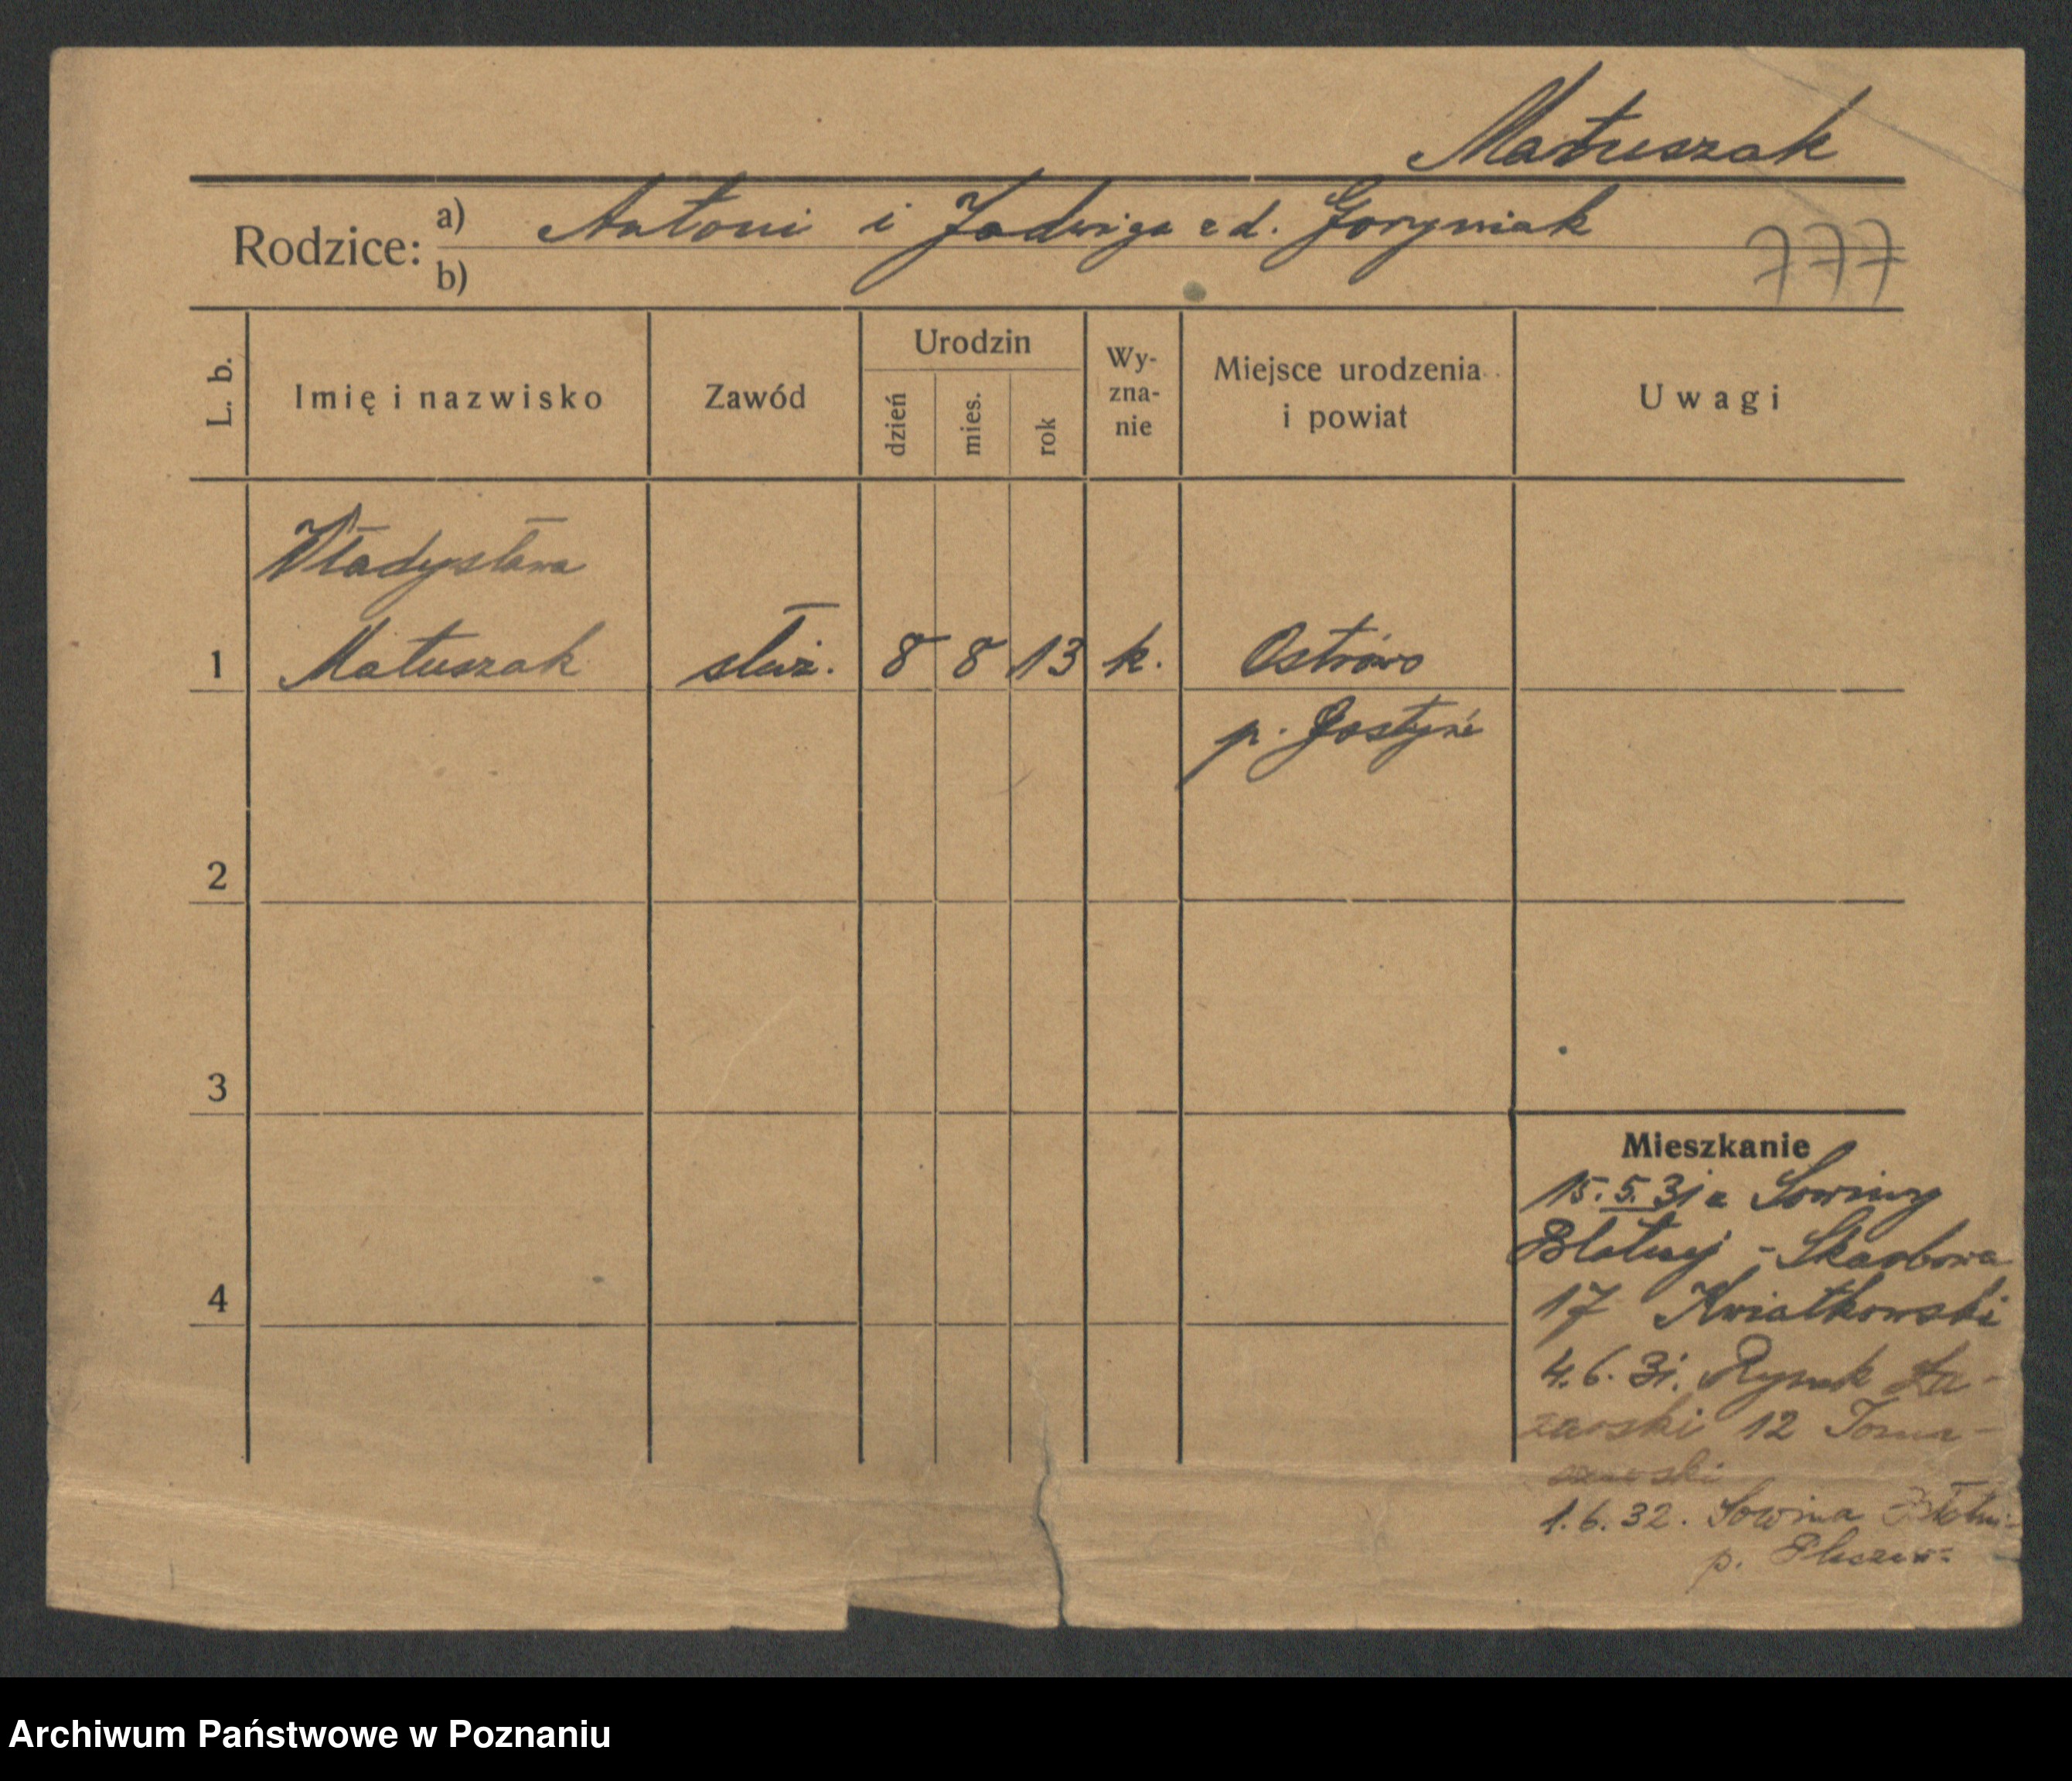 Matuszak
Rodzice: a) Antoni i Jadwiga z d. Goryniak
b)
777
L. b.
Imię i nazwisko
Zawód
Urodzin
dzień
mies.
rok
Wy-
zna-
nie
Miejsce urodzenia
i powiat
Uwagi
Władysława
1 Matuszak służ. 8 8 13 k. Ostrowo
p. Gostyń
2
3
4
Mieszkanie
15.5.31 z Sowiny
Błotnej - Skarbowa
17 Kwiatkowski
4.6.31. Rynek Ła-
zarski 12 Toma-
szewski
1.6.32. Sowina
p. Pleszew
Archiwum Państwowe w Poznaniu